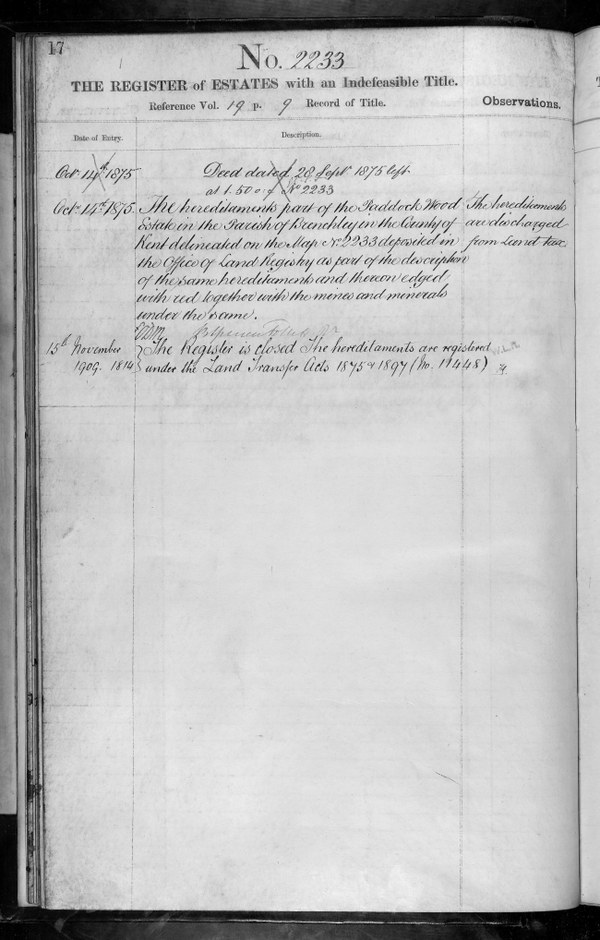 17
No. 2233
THE REGISTER of ESTATES with an Indefeasible Title.
Reference Vol. 19 p. 9 Record of Title.
Observations.
Date of Entry.
Description.
Oct 14th 1875
Deed dated 28 Sept 1875 left
at 1.50 No 2233
Oct 14th 1875.
The hereditaments part of the Paddock Wood
Estate in the Parish of Brenchley in the County of
Kent delineated on the Map No 2233 deposited in
the Office of Land Registry as part of the description
of the same hereditaments and thereon edged
with red together with the mines and minerals
under the same.
The hereditaments
are discharged
from Land tax
15th November
1909. 1814
The Register is closed The hereditaments are registered
under the Land Transfer Acts 1875 & 1897 (No. 11448)